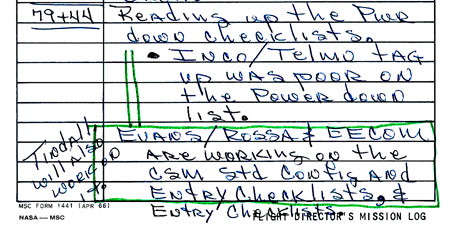 79+44 READING UP the PWR
down checklists.
• INCO/TELMU tAG
UP WAS POOR ON
the POWER down
list.
EVANS/ROSSA & EECOM
ARE WORKING ON the
CSM Std CONFIG AND
ENTRY CHECKLISTS, &
ENTRY CHECKLISTS
Tindall
will Also
WORK ON
it.
MSC FORM 1441 (APR 66)
NASA — MSC
FLIGHT DIRECTOR'S MISSION LOG